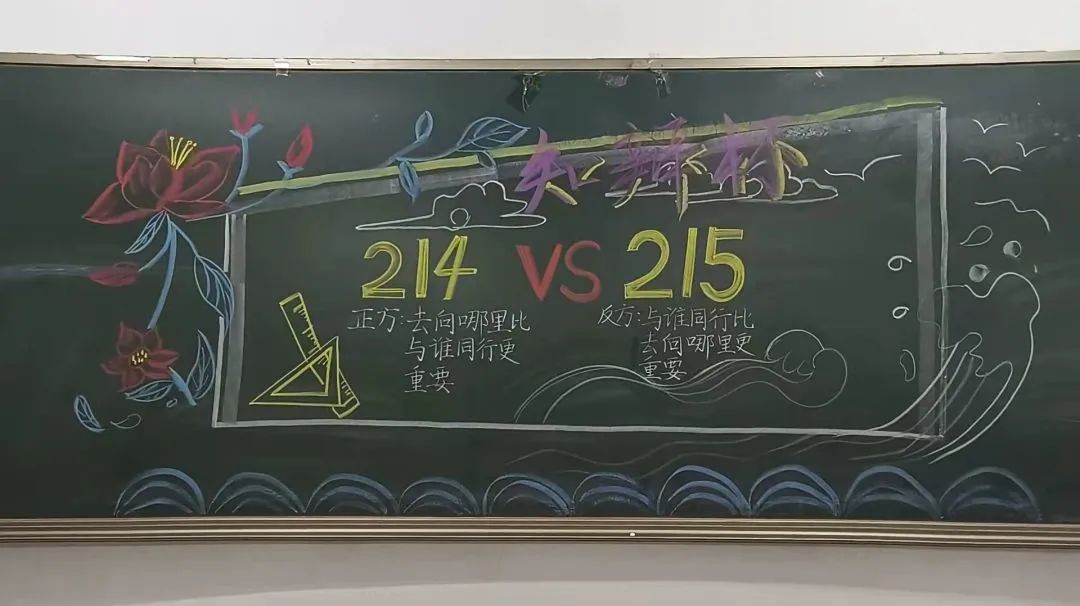 知辩杯
214 VS 215
正方:去向哪里比
与谁同行更
重要
反方:与谁同行比
去向哪里更
重要